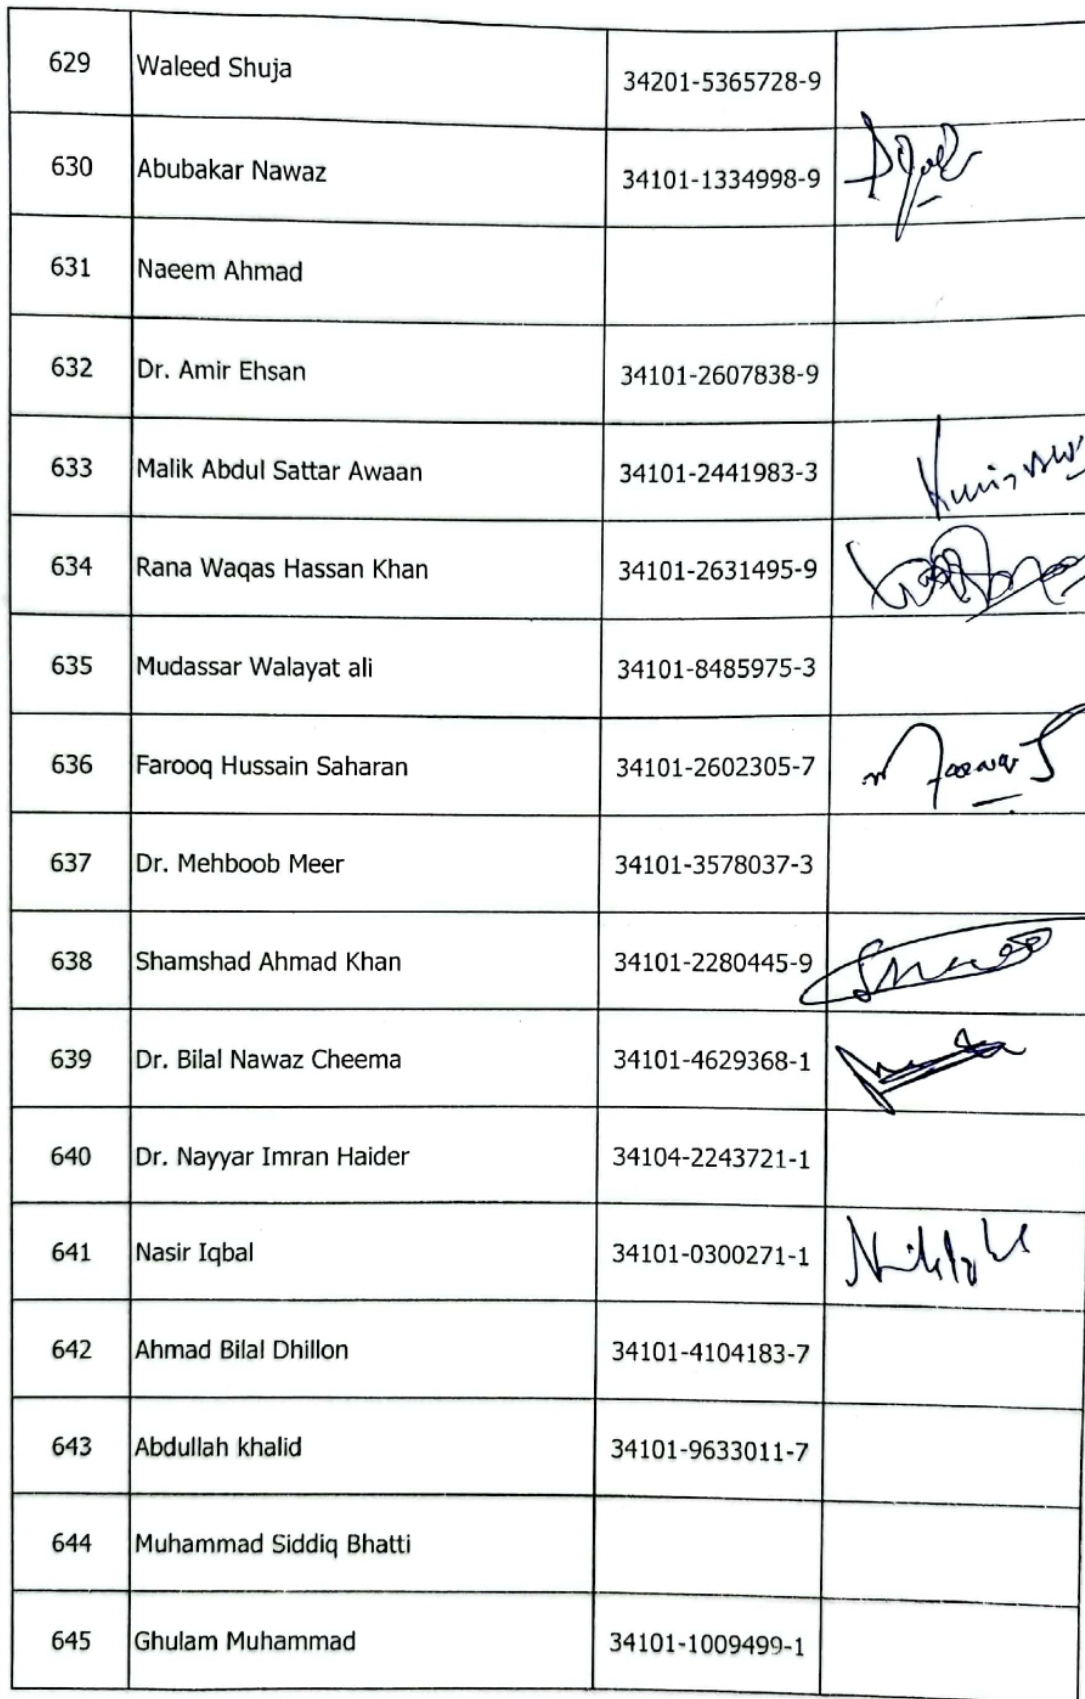 629 Waleed Shuja 34201-5365728-9
630 Abubakar Nawaz 34101-1334998-9
631 Naeem Ahmad
632 Dr. Amir Ehsan 34101-2607838-9
633 Malik Abdul Sattar Awaan 34101-2441983-3
634 Rana Waqas Hassan Khan 34101-2631495-9
635 Mudassar Walayat ali 34101-8485975-3
636 Farooq Hussain Saharan 34101-2602305-7
637 Dr. Mehboob Meer 34101-3578037-3
638 Shamshad Ahmad Khan 34101-2280445-9
639 Dr. Bilal Nawaz Cheema 34101-4629368-1
640 Dr. Nayyar Imran Haider 34104-2243721-1
641 Nasir Iqbal 34101-0300271-1
642 Ahmad Bilal Dhillon 34101-4104183-7
643 Abdullah khalid 34101-9633011-7
644 Muhammad Siddiq Bhatti
645 Ghulam Muhammad 34101-1009499-1